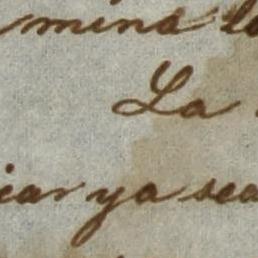 mina la
La
iar ya sea